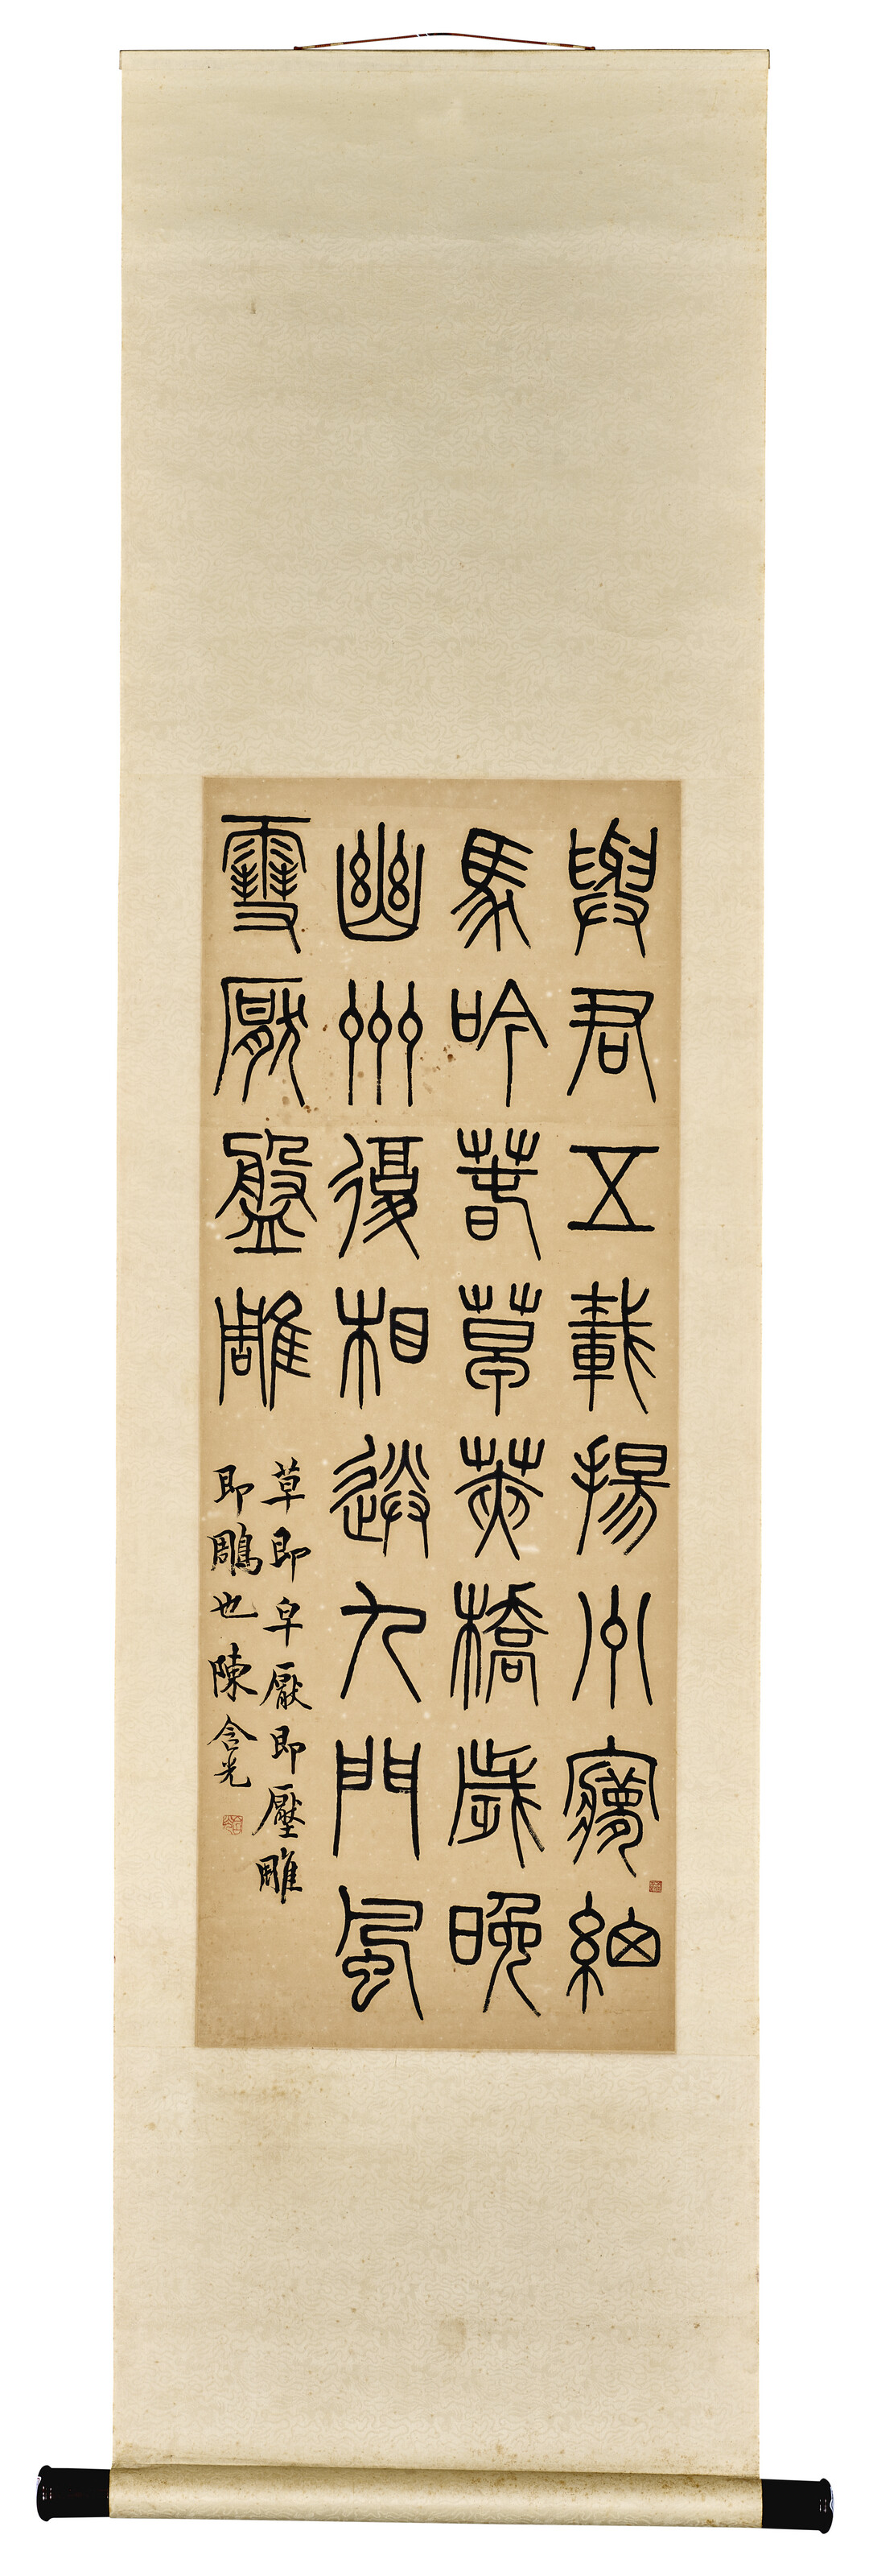 與君五載揚州夢細
馬吟春草莢橋歲晚
幽州復相送九門風
雪厭盤雕
草即皁厭即壓雕
即鵰也陳含光